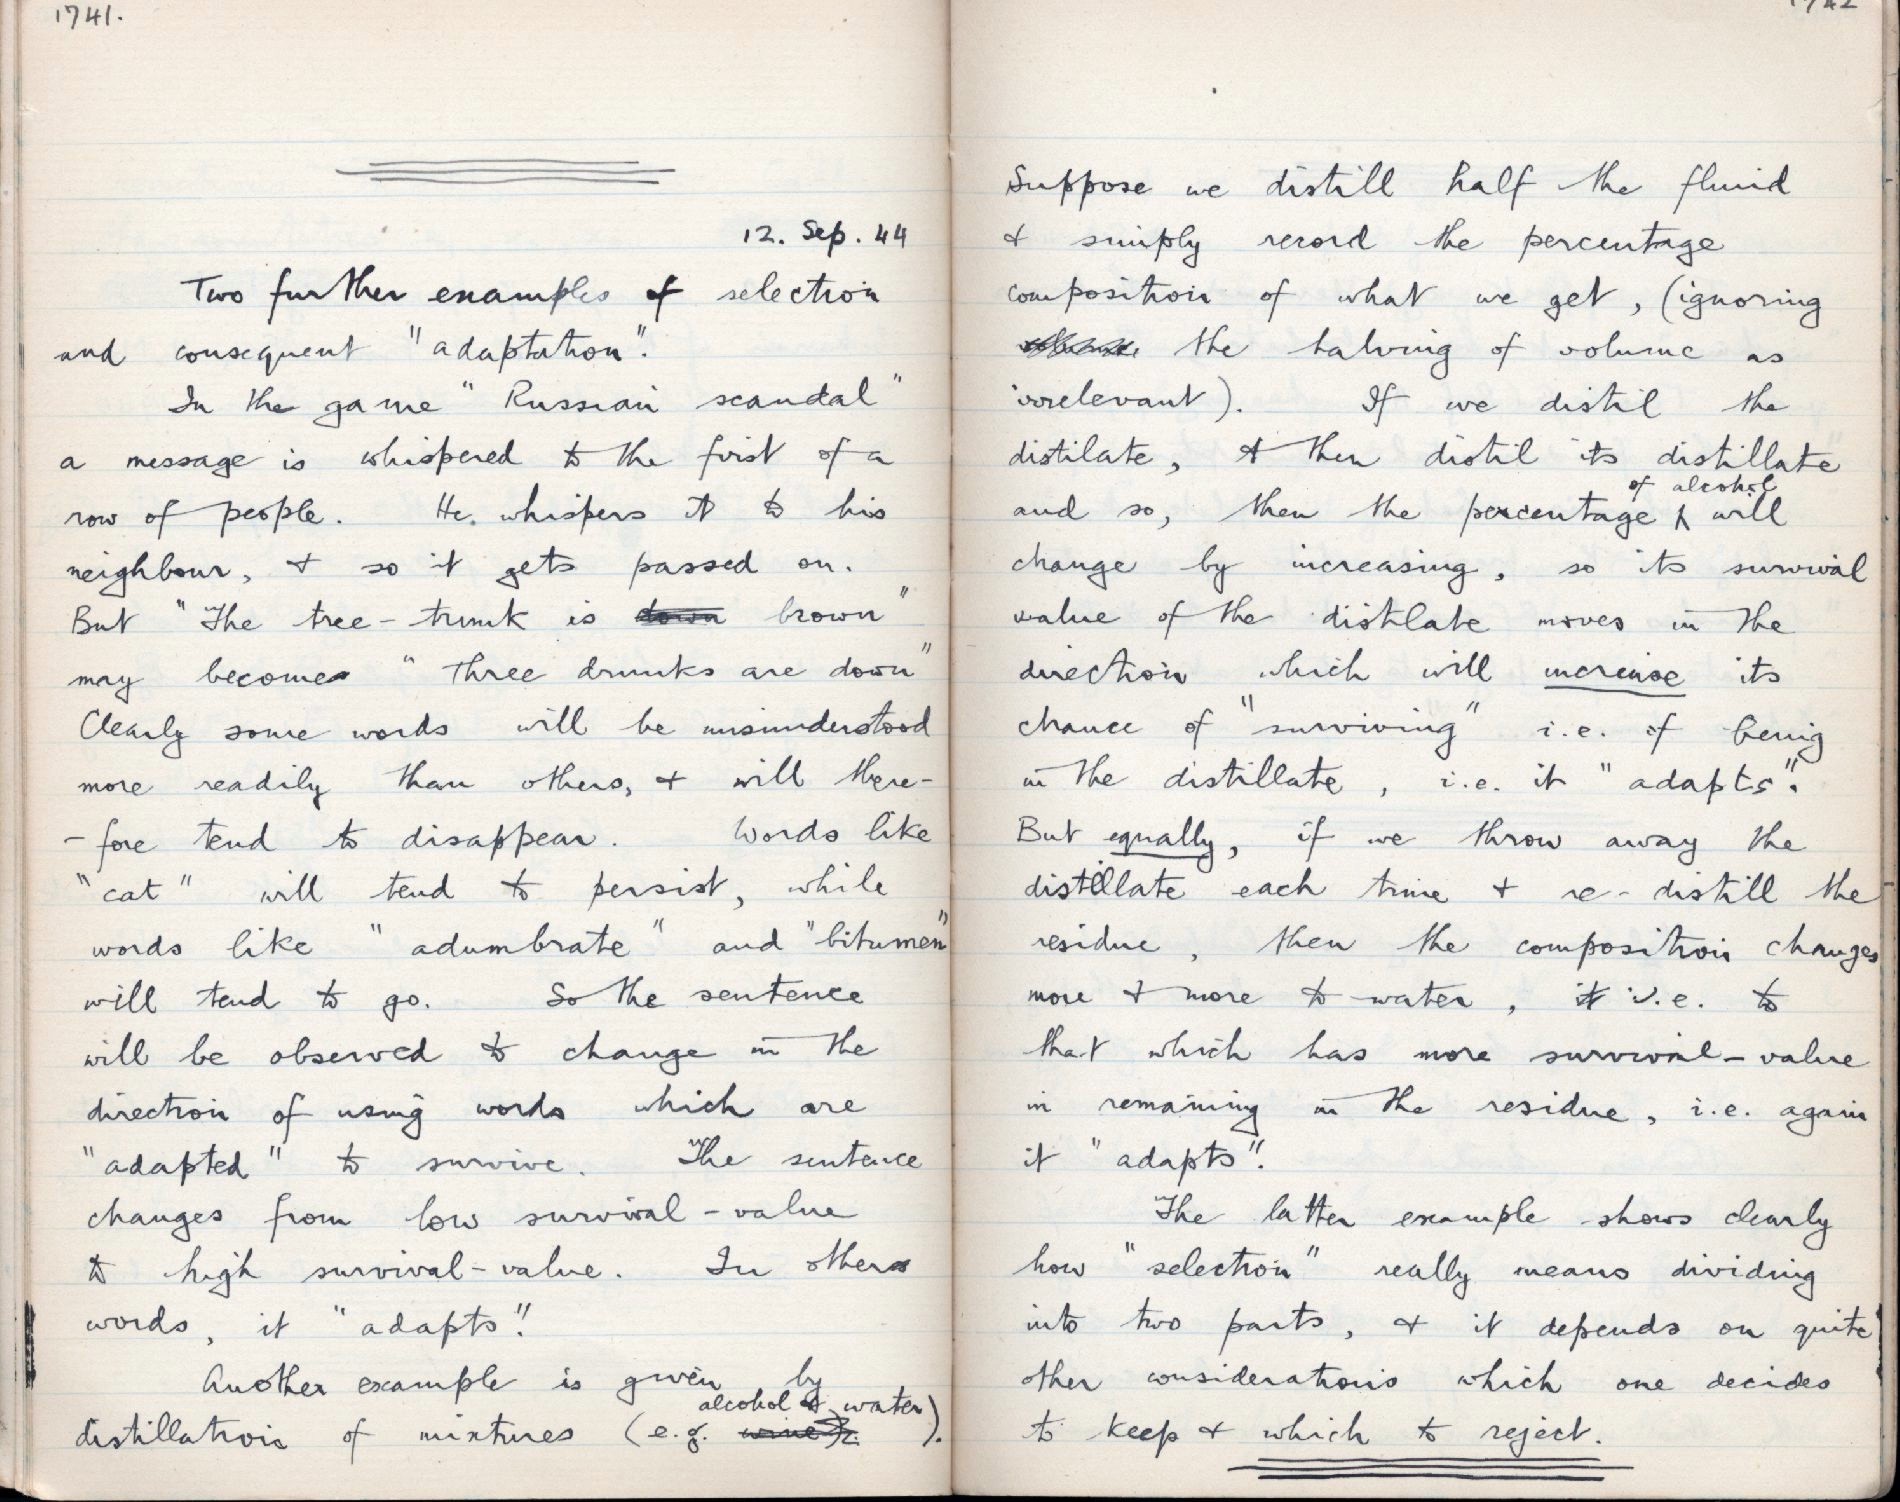 1741.
12. Sep. 44
Two further examples of selection
and consequent "adaptation".
In the game "Russian scandal"
a message is whispered to the first of a
row of people. He whispers it to his
neighbour, & so it gets passed on.
But "The tree-trunk is down brown"
may becomes "three drunks are down"
Clearly some words will be misunderstood
more readily than others, & will there-
-fore tend to disappear. Words like
"cat" will tend to persist, while
words like "adumbrate" and "bitumen"
will tend to go. So the sentence
will be observed to change in the
direction of using words which are
"adapted" to survive. The sentence
changes from low survival-value
to high survival-value. In others
words, it "adapts".
Another example is given by
alcohol & water
distillation of mixtures (e.g. wine).
1742
Suppose we distill half the fluid
& simply record the percentage
composition of what we get, (ignoring
volume the halving of volume as
irrelevant). If we distil the
distilate, & then distil its distillate
of alcohol
and so, then the percentage ^ will
change by increasing, so its survival
value of the distilate moves in the
direction which will increase its
chance of "surviving" i.e. of being
in the distillate, i.e. it "adapts".
But equally, if we throw away the
distillate each time & re-distill the
residue, then the composition changes
more & more to water, it i.e. to
that which has more survival-value
in remaining in the residue, i.e. again
it "adapts".
The latter example shows clearly
how "selection" really means dividing
into two parts, & it depends on quite
other considerations which one decides
to keep & which to reject.